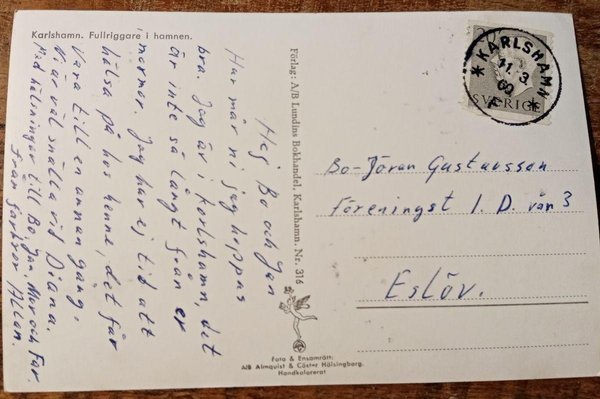 Karlshamn. Fullriggare i hamnen.
Hej Bo och Jan
Hur mår ni jag hoppas
bra. Jag är i Karlshamn, det
är inte så långt från er
mormor. Jag har ej tid att
hälsa på hos henne, det får
vara till en annan gång,
Ni är väl snälla vid Diana.
Med hälsningar till Bo, Jan, Mor och Far
från farbror Allan.
Förlag: A/B Lundins Bokhandel, Karlshamn. Nr. 316
KARLSHAMN
11. 3.
60
SVERIGE
Bo-Göran Gustavsson
Föreningst 1. D. vån 3
Eslöv.
Foto & Ensamrätt:
A/B Almquist & Cöster Hälsingborg.
Handkolorerat